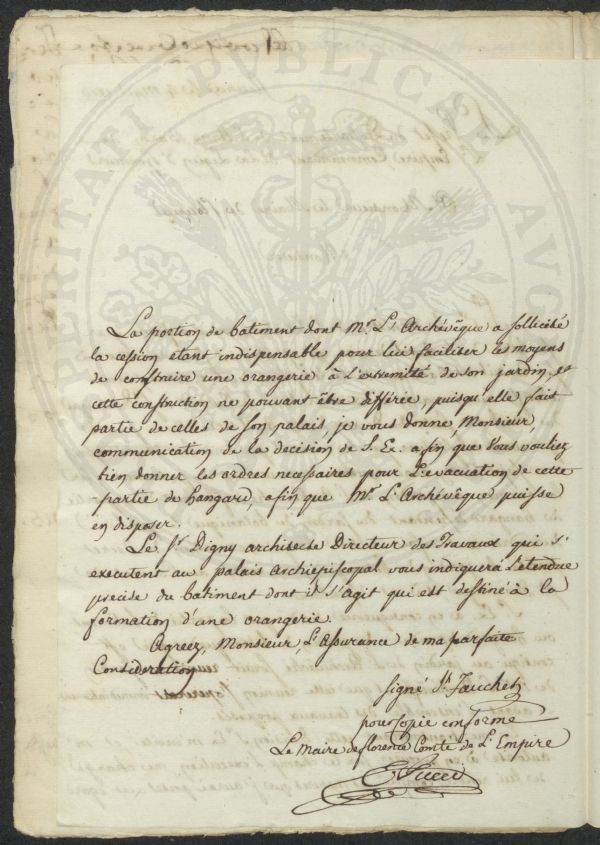 PROSPERITATI PUBLICAE AUG
La portion de batiment dont Mr. L'Archévêque a sollicité
la cession étant indispensable pour lui faciliter les moyens
de construire une orangerie à l'extremité de son jardin, et
cette construction ne pouvant être différée, puisqu'elle fait
partie de celles de son palais, je vous donne, Monsieur,
communication de la decision de S. Ex. afin que vous vouliez
bien donner les ordres necessaires pour l'evacuation de cette
partie de hangard, afin que Mr. L'Archévêque puisse
en disposer.
Le Sr. Digny architecte Directeur des Travaux qui s'
executent au palais archiepiscopal vous indiquera l'etendue
precise du batiment dont il s'agit qui est destiné à la
formation d'une orangerie.
Agréez, Monsieur, L'Assurance de ma parfaite
Consideration
signé Jh. Fauchet
pour copie conforme
Le Maire de florence Comte de L'Empire